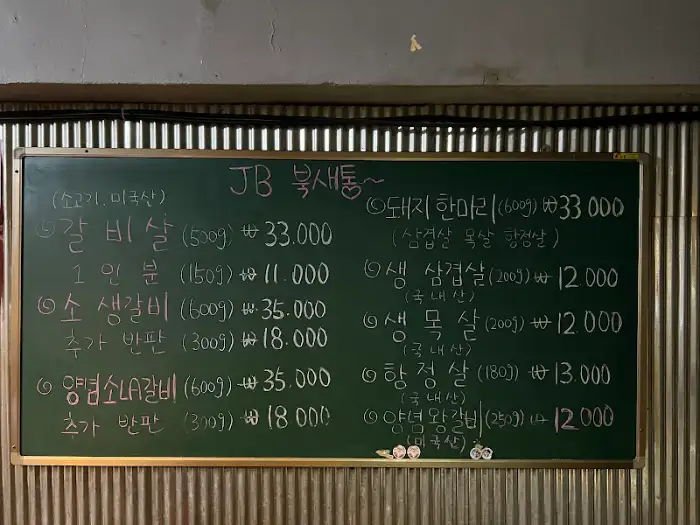 JB 북새통~
(소고기. 미국산)
◎ 갈비살 (500g) ₩ 33.000
1인분 (150g) ₩ 11.000
◎ 소 생갈비 (600g) ₩ 35.000
추가 반판 (300g) ₩ 18.000
◎ 양념소LA갈비 (600g) ₩ 35.000
추가 반판 (300g) ₩ 18 000
◎ 돼지한마리 (600g) ₩ 33 000
(삼겹살 목살 항정살)
◎ 생 삼겹살 (200g) ₩ 12.000
(국내산)
◎ 생 목 살 (200g) ₩ 12.000
(국내산)
◎ 항정살 (180g) ₩ 13.000
(국내산)
◎ 양념왕갈비 (250g) ₩ 12.000
(미국산)